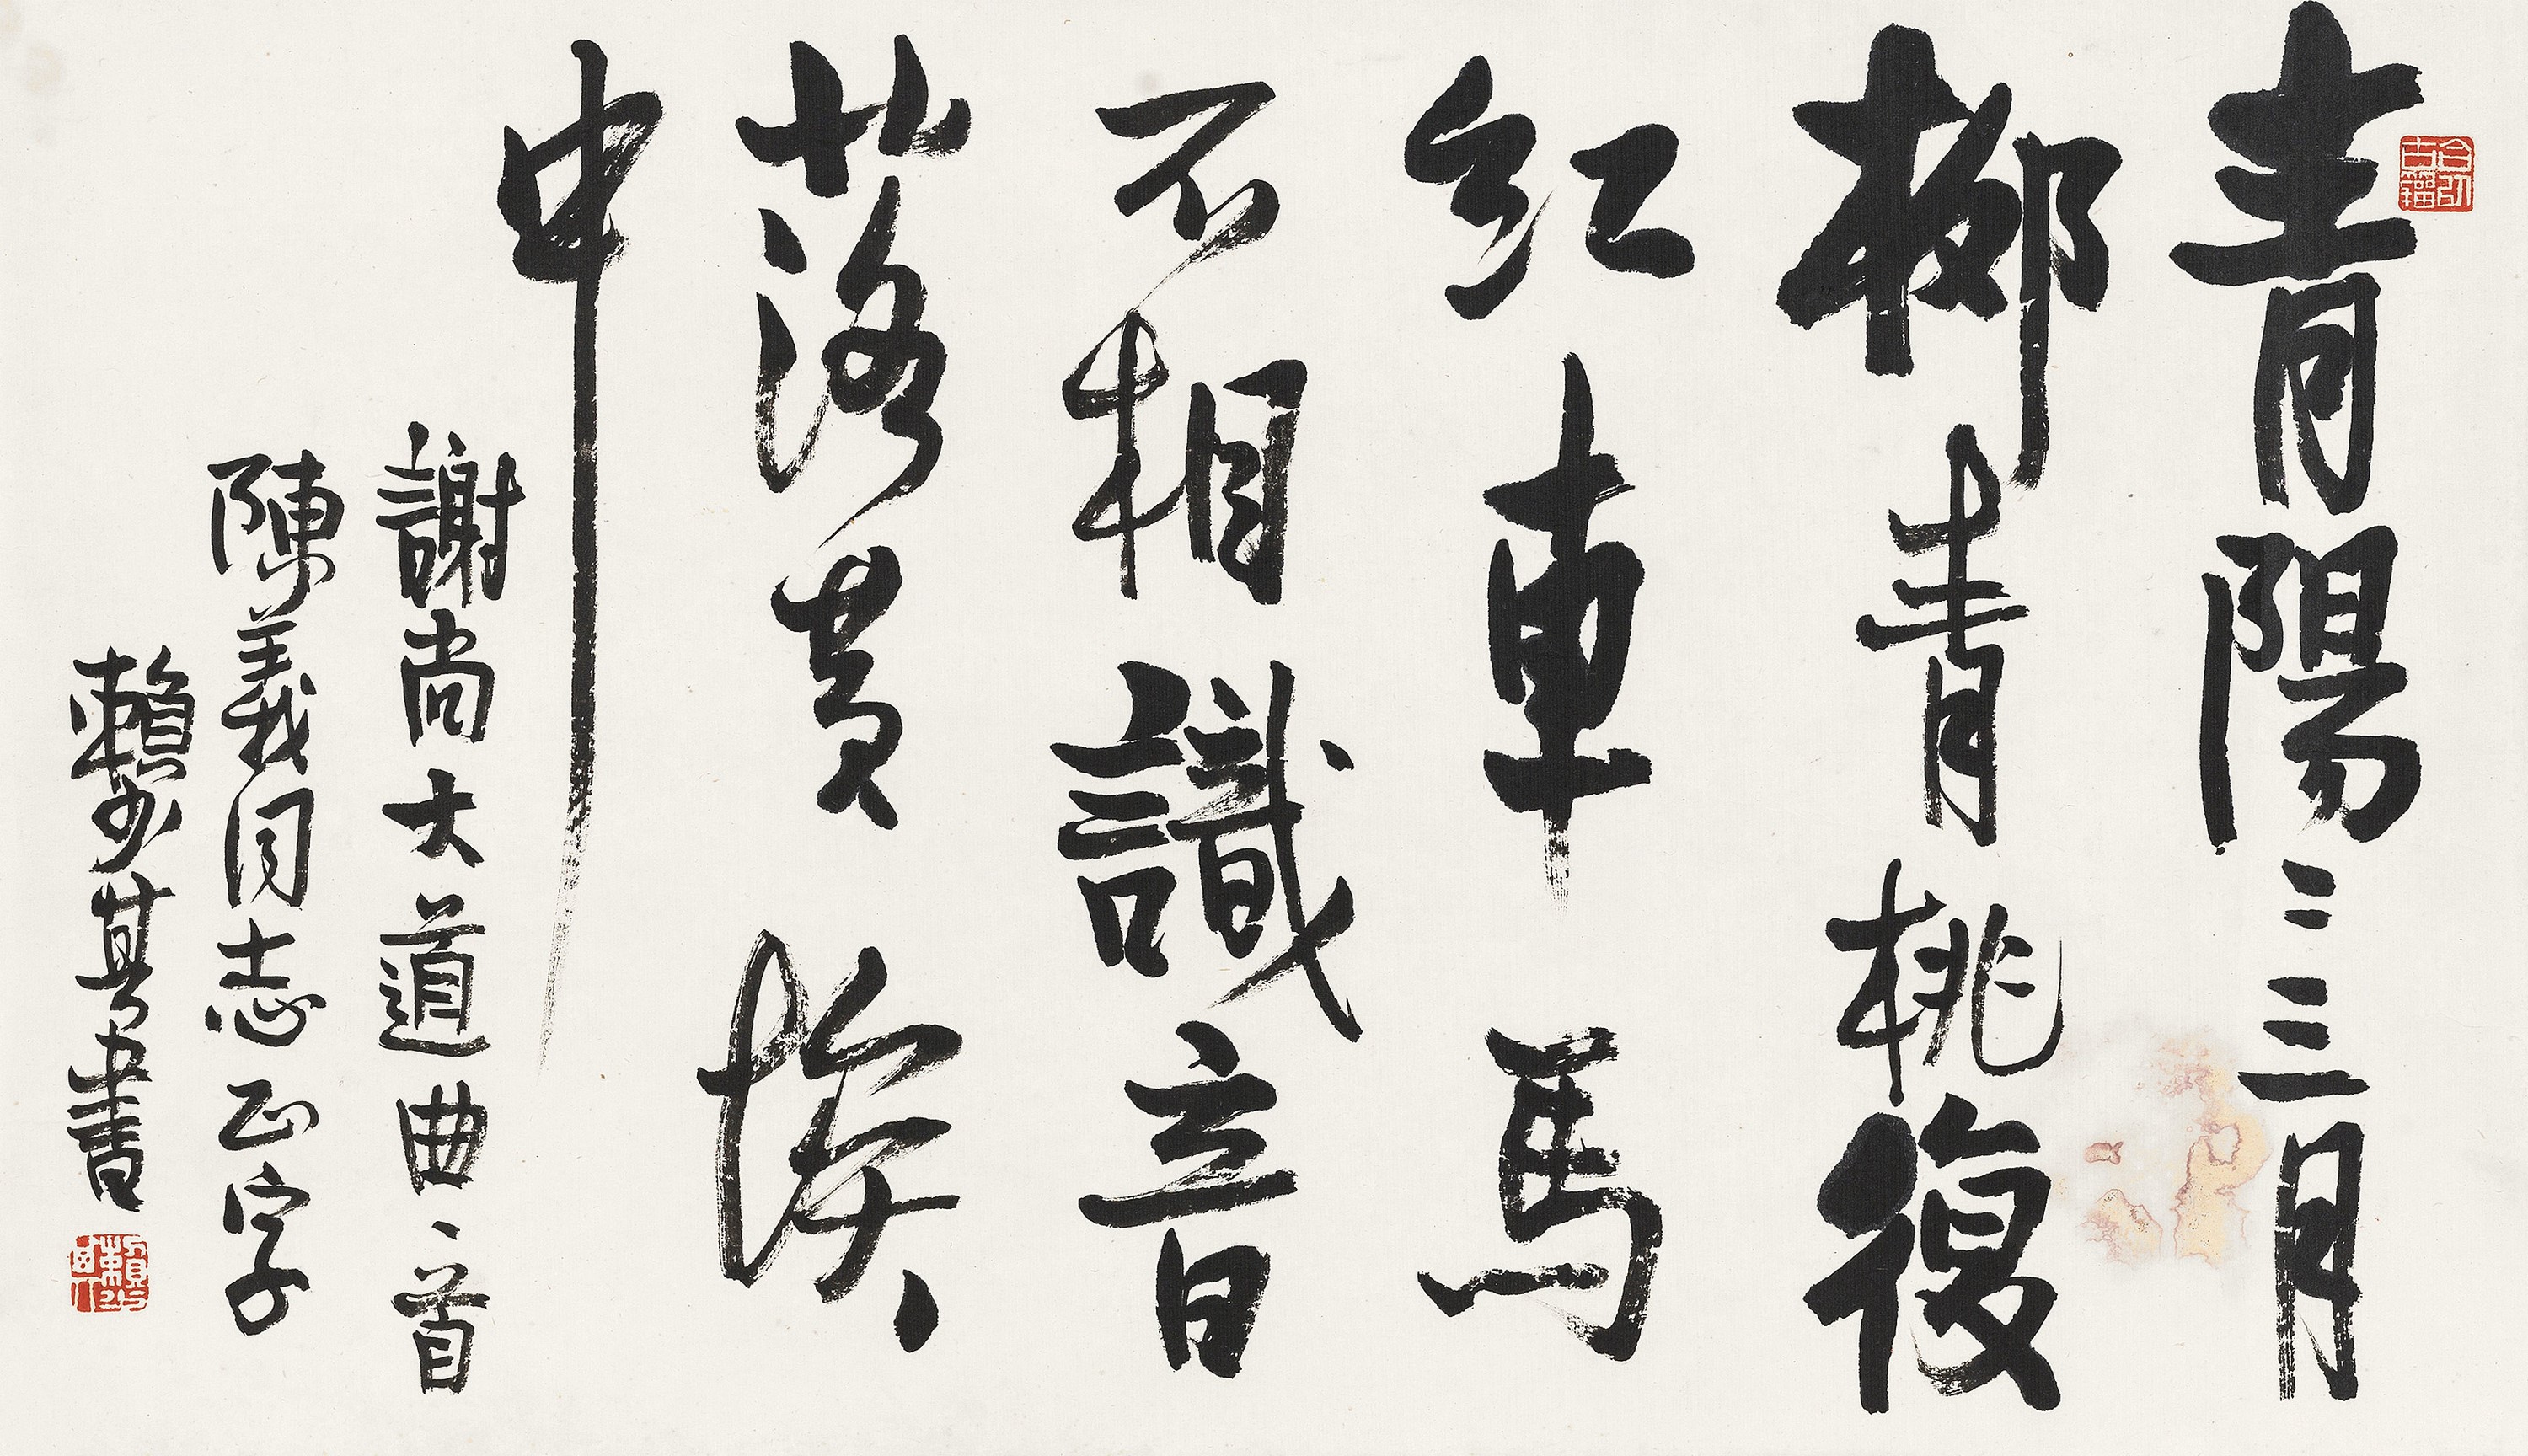 青陽二三月
柳青桃復
紅車馬
不相識音
落黃埃
中
謝尚大道曲一首
陳義同志正字
賴少其書